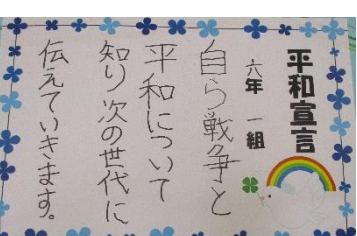 平和宣言
六年 一組
自ら戦争と
平和について
知り次の世代に
伝えていきます。